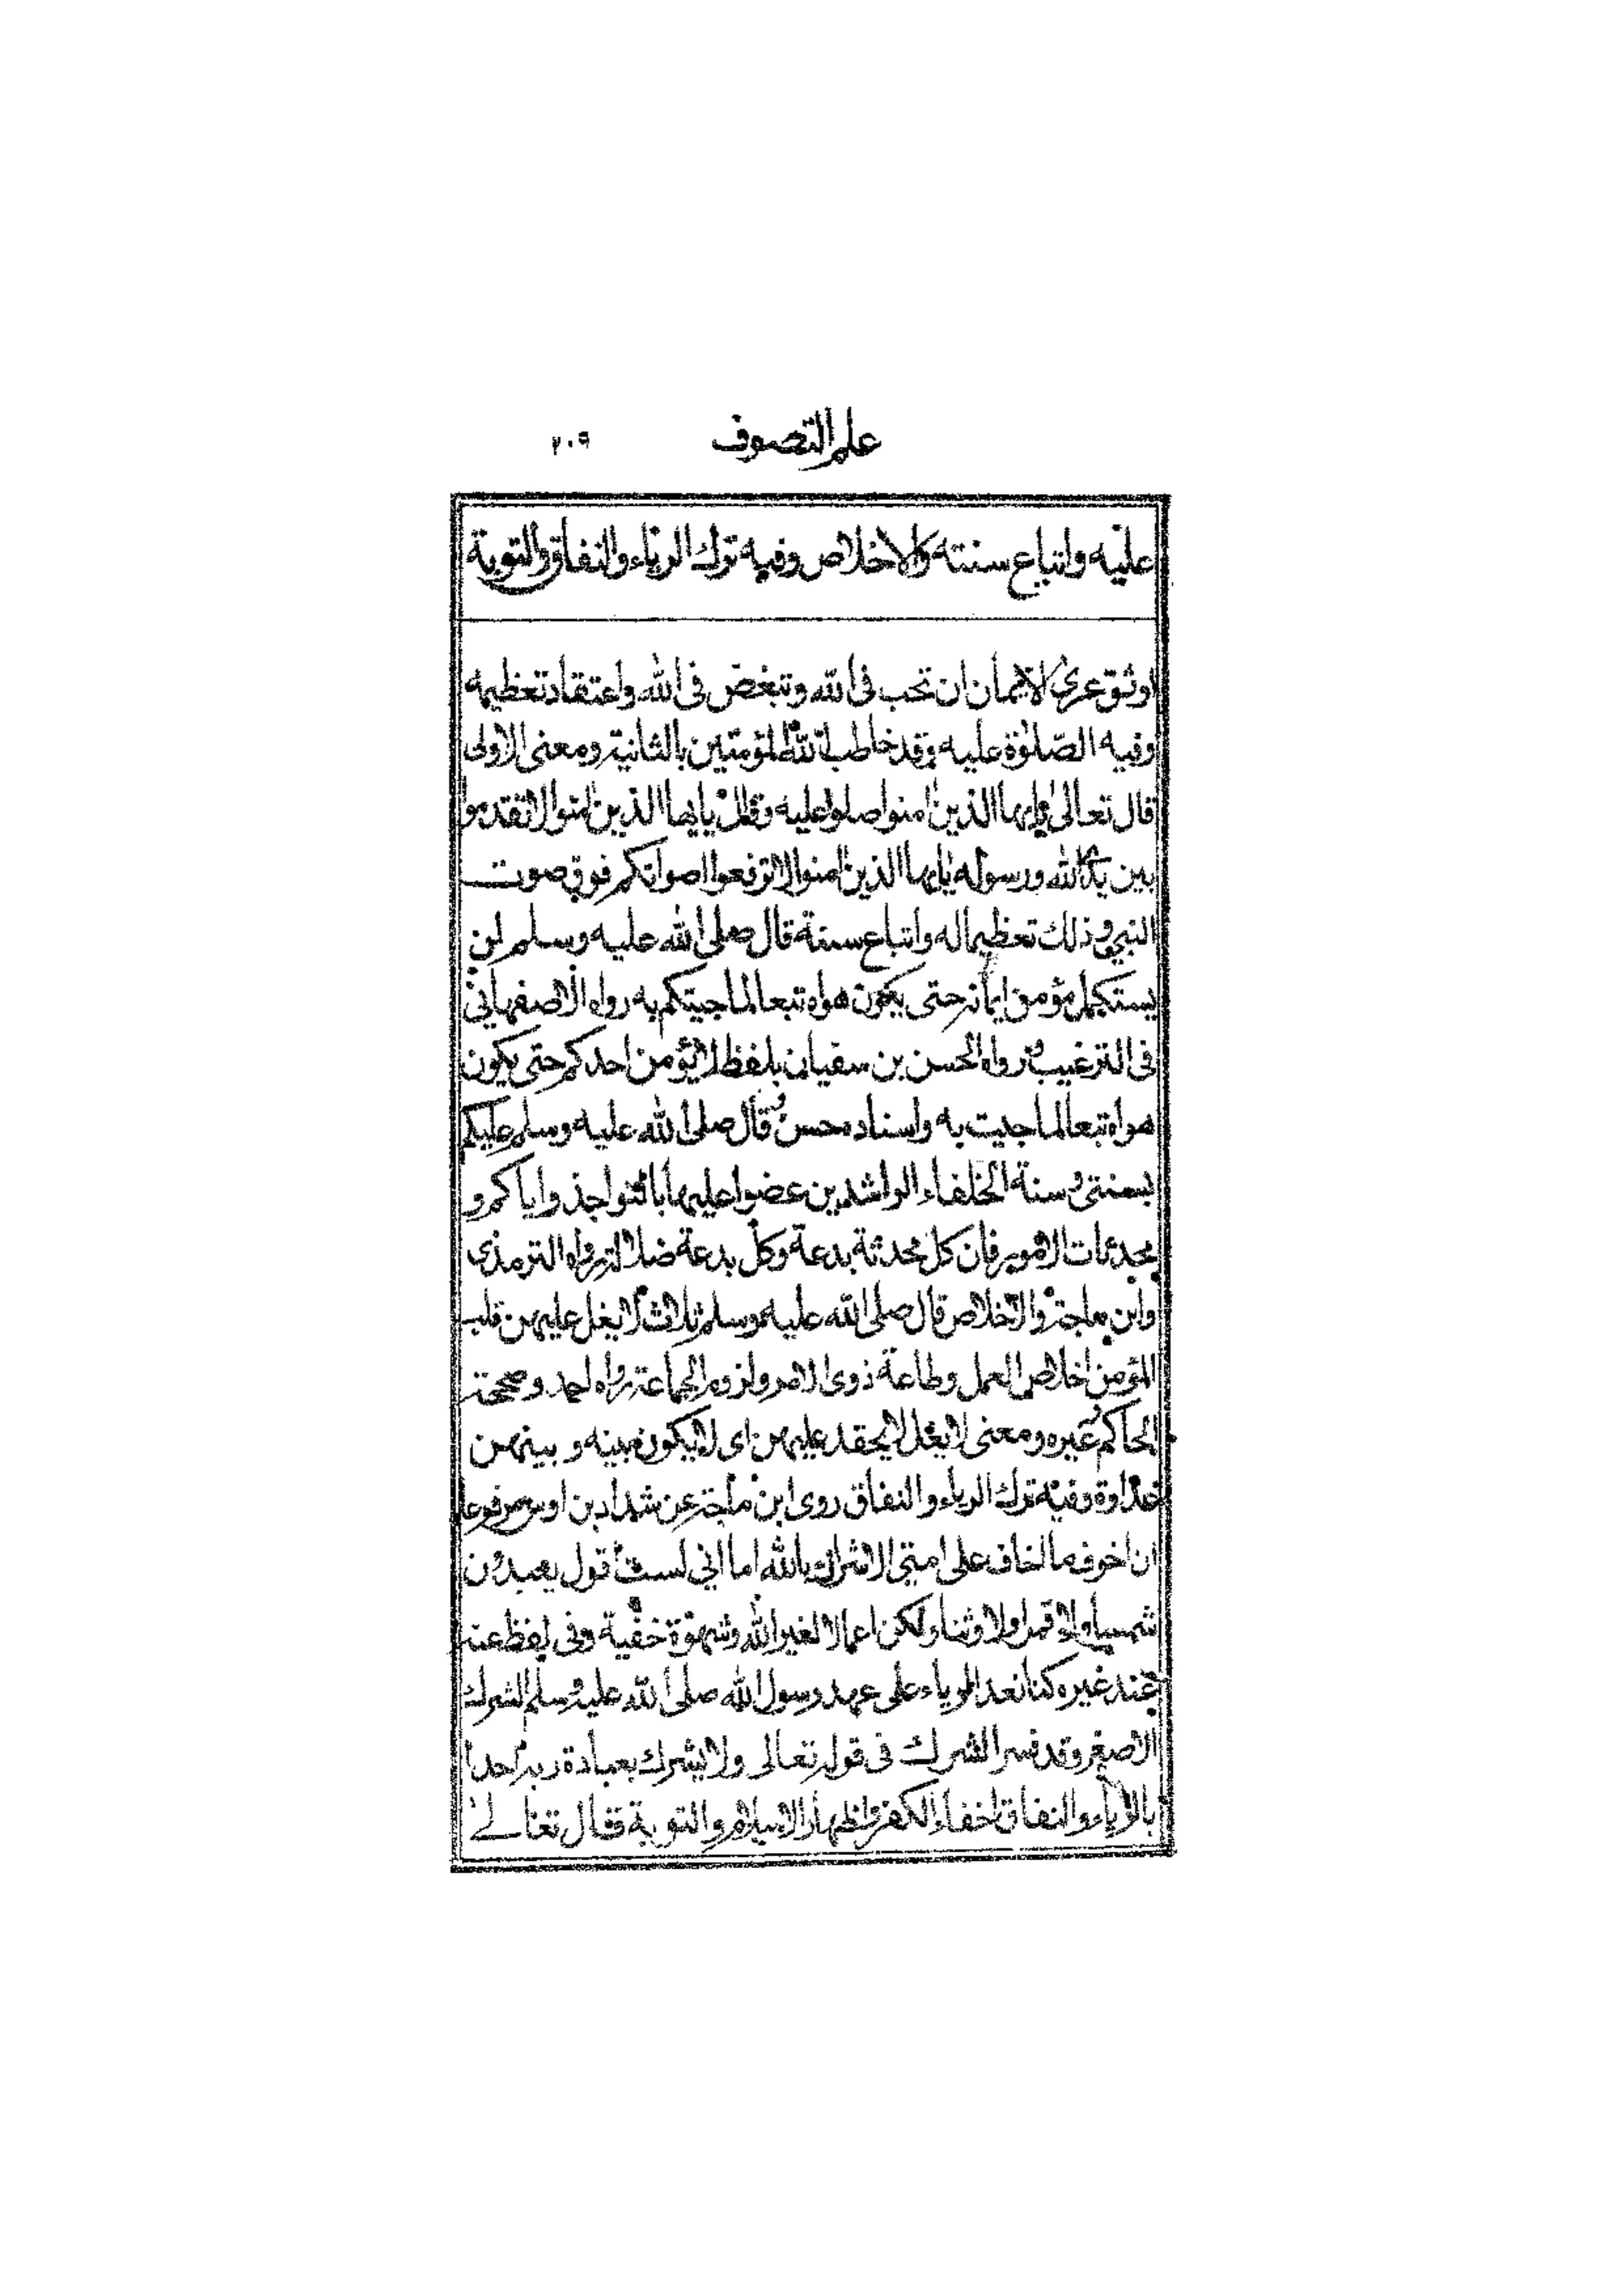 علم التصوف ٢٠٩
عليه واتباع سنته والاخلاص وفيه ترك الرياء والنفاق والتوبة
اوثق عرى الايمان ان تحب فى الله وتبغض فى الله واعتقاد تعظيمه
وفيه الصلوة عليه وقد خاطب الله المؤمنين بالثانية ومعنى الاولى
قال تعالى يايها الذين امنوا صلوا عليه وقال يايها الذين امنوا لا تقدموا
بين يدى الله ورسوله يايها الذين امنوا لا ترفعوا اصواتكم فوق صوت
النبى وذلك تعظيما له واتباع سنة قال صلى الله عليه وسلم لن
يستكمل مؤمن ايمانه حتى يكون هواه تبعا لما جيتكم به رواه الاصفهانى
فى الترغيب ورواه الحسن بن سفيان بلفظ لا يؤمن احدكم حتى يكون
هواه تبعا لما جيت به واسناده حسن وقال صلى الله عليه وسلم عليكم
بسنتى وسنة الخلفاء الراشدين عضوا عليها بالنواجذ واياكم و
محدثات الامور فان كل محدثة بدعة وكل بدعة ضلالة رواه الترمذى
وابن ماجة والاخلاص قال صلى الله عليه وسلم ثلاث لا يغل عليهن قلب
المؤمن اخلاص العمل وطاعة ذوى الامر ولزوم الجماعة رواه احمد وصححه
الحاكم وغيره ومعنى لا يغل لا يحقد عليهن اى لا يكون بينه وبينهن
عداوة وفيه ترك الرياء والنفاق روى ابن ماجة عن شداد بن اوس مرفوعا
ان اخوف ما اخاف على امتى الاشراك بالله اما انى لست اقول يعبدون
شمسا ولا قمرا ولا وثنا ولكن اعمالا لغير الله وشهوة خفية وفى لفظ عنه
عند غيره كنا نعد الرياء على عهد رسول الله صلى الله عليه وسلم الشرك
الاصغر وقد فسر الشرك فى قوله تعالى ولا يشرك بعبادة ربه احدا
بالرياء والنفاق اخفاء الكفر واظهار الاسلام والتوبة قال تعالى